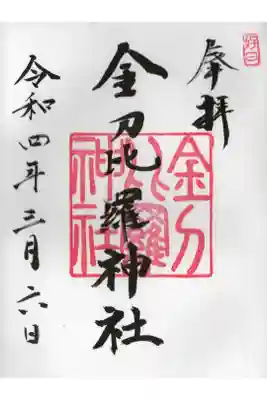 奉拝
金刀比羅神社
令和四年三月六日
金刀比羅神社